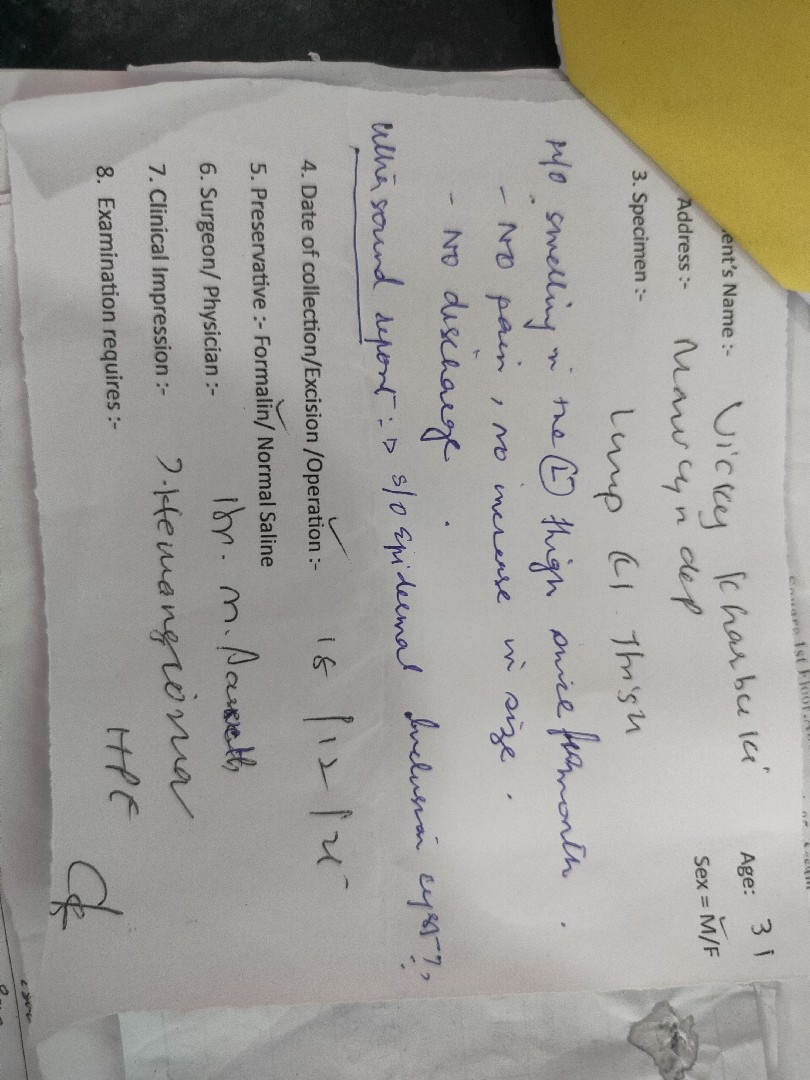 ent's Name :- Vicky Kharbuki Age: 31
Address :- Sex = M/F
3. Specimen :- Lump (L). Thigh
H/O swelling in the (L) thigh since month.
- No pain, no increase in size.
- No discharge.
Ultra sound report :-> s/o Epidermal Inclusion cyst ?
4. Date of collection/Excision /Operation :- 18 /12 /
5. Preservative :- Formalin/ Normal Saline
6. Surgeon/ Physician :- Dr. M.
7. Clinical Impression :- ? Hemangioma
8. Examination requires :- HPE